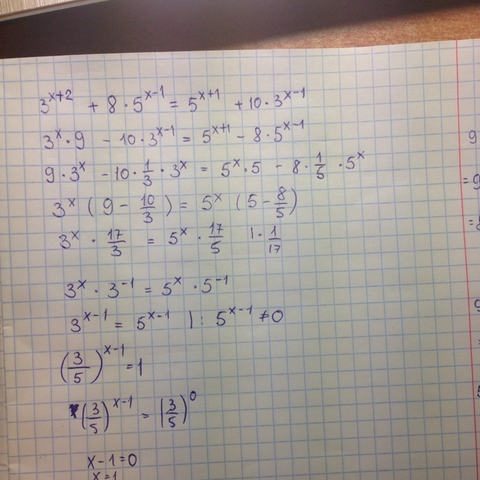 3^{x+2} + 8 · 5^{x-1} = 5^{x+1} + 10 · 3^{x-1}
3^x · 9 - 10 · 3^{x-1} = 5^{x+1} - 8 · 5^{x-1}
9 · 3^x - 10 · \frac{1}{3} · 3^x = 5^x · 5 - 8 · \frac{1}{5} · 5^x
3^x (9 - \frac{10}{3}) = 5^x (5 - \frac{8}{5})
3^x · \frac{17}{3} = 5^x · \frac{17}{5} | · \frac{1}{17}
3^x · 3^{-1} = 5^x · 5^{-1}
3^{x-1} = 5^{x-1} | : 5^{x-1} ≠ 0
(\frac{3}{5})^{x-1} = 1
(\frac{3}{5})^{x-1} = (\frac{3}{5})^0
x - 1 = 0
x = 1